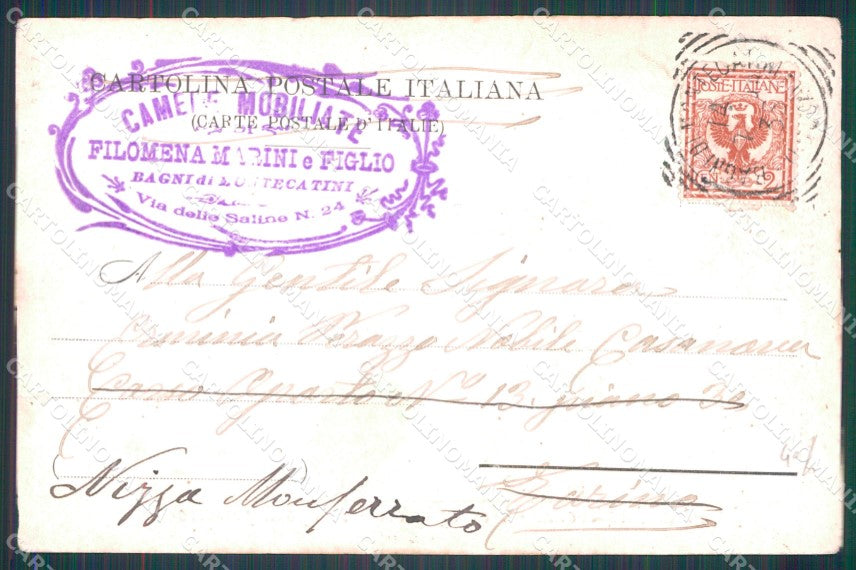 CARTOLINA POSTALE ITALIANA
(CARTE POSTALE D'ITALIE)
CAMERE MOBILIATE
FILOMENA MARINI e FIGLIO
BAGNI di MONTECATINI
Via delle Saline N. 24
POSTE ITALIANE
CENT. 2
Alla Gentile Signora
Erminia Verazzo Nobile Casanova
Corso Oporto No 13 piano 3o
Torino
Nizza Monferrato
CARTOLINOMANIA